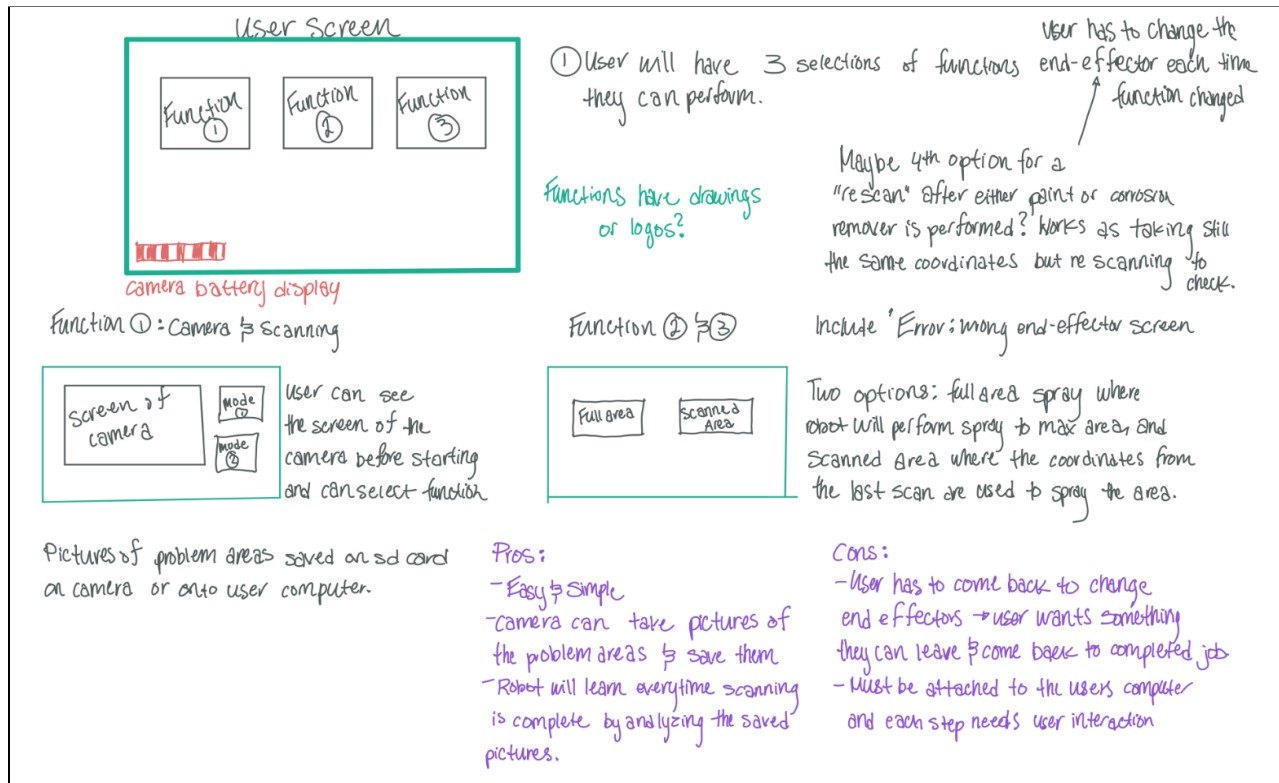 User Screen
Function
①
Function
②
Function
③
camera battery display
① User will have 3 selections of functions
they can perform.
user has to change the
end-effector each time
function changed
Functions have drawings
or logos?
Maybe 4th option for a
"rescan" after either paint or corrosion
remover is performed? Works as taking still
the same coordinates but re scanning to
check.
Function ①: Camera & Scanning
Screen of
camera
Mode
①
Mode
②
User can see
the screen of the
camera before starting
and can select function
Function ② & ③
Full area
Scanned
Area
Include "Error: wrong end-effector screen
Two options: full area spray where
robot will perform spray to max area, and
Scanned Area where the coordinates from
the last scan are used to spray the area.
Pictures of problem areas saved on sd card
on camera or onto user computer.
Pros:
- Easy & Simple
- Camera can take pictures of
the problem areas & save them
- Robot will learn everytime scanning
is complete by analyzing the saved
pictures.
Cons:
- User has to come back to change
end effectors → user wants something
they can leave & come back to completed job
- Must be attached to the users computer
and each step needs user interaction